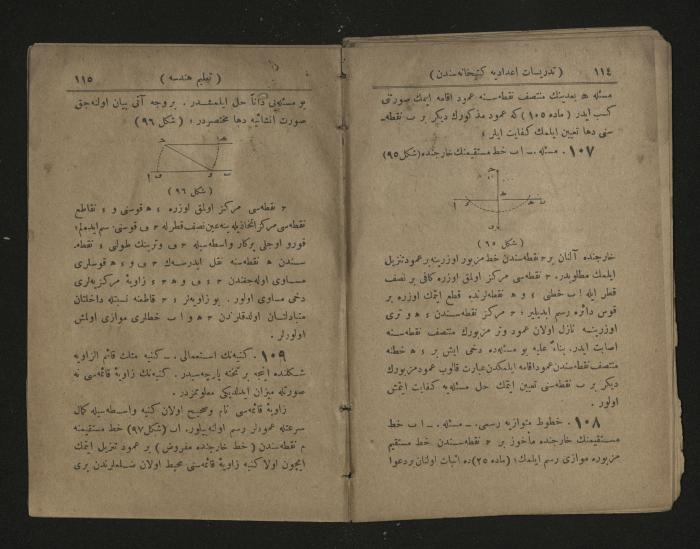 ١١٤ (تدريسات اعداديه كتبخانه‌سندن)
مسئله ه بعدينك منتصف نقطه‌سنه عمود اقامه ايتمك صورتنى
كسب ايدر (ماده ١٠٥) كه عمود مذكورك ديكر بر ب نقطه‌
سنى دها تعيين ايلمك كفايت ايلر؛
١٠٧ . مسئله . ـ ا ب خط مستقيمنك خارجنده (شكل ٩٥)
(شكل ٩٥)
خارجنده آلنان بر ح نقطه‌سندن خط مزبور اوزرينه بر عمود تنزيل
ايلمك مطلوبدر. ح نقطه‌سى مركز اولمق اوزره كافى بر نصف
قطر ايله ا ب خطنى ء و ه نقطه‌لرنده قطع ايتمك اوزره بر
قوس دائره رسم ايديلير؛ ح مركز نقطه‌سندن ء ه وترى
اوزرينه نازل اولان عمود وتر مزبورك منتصف نقطه‌سنه
اصابت ايدر. بناءً عليه بو مسئله‌ده دخى ايش بر ء ه خطنه
منتصف نقطه‌سندن عمود اقامه ايلمكدن عبارت قالوب عمود مزبورك
ديكر بر ب نقطه‌سنى تعيين ايتمك حل مسئله‌يه كفايت ايتمش
اولور .
١٠٨ . خطوط متوازيه رسمى . ـ مسئله . ـ ا ب خط
مستقيمنك خارجنده مأخوذ بر ح نقطه‌سندن خط مستقيم
مزبوره موازى رسم ايلمك؛ (ماده ٢٥) ده اثبات اولنان بر دعوا
(تعليم هندسه) ١١٥
بو مسئله‌يى ذاتاً حل ايلمشدر . بر وجه آتى بيان اوله‌جق
صورت انشائيه دها مختصردر : (شكل ٩٦)
(شكل ٩٦)
ح نقطه‌سى مركز اولمق اوزره ء ه قوسنى و ء تقاطع
نقطه‌سى مركز اتخاذيله ينه عين نصف قطر له ح ف قوسنى رسم ايده‌لم؛
قورو اوجلى پركار واسطه‌سيله ح ف وترينك طولنى ء نقطه‌
سندن ه نقطه‌سنه نقل ايدرسه‌ك ح ف و ء ه قوسلرى
مساوى اوله‌جغندن ح ء ف و ء ح ه زاويهٔ مركزيه‌لرى
دخى مساوى اولور . بو زاويه‌لر ء ح قاطعنه نسبتله داخلتان
متبادلتان اولدقلرندن ح ه و ا ب خطلرى موازى اولمش
اولورلر .
١٠٩ . كنيه‌نك استعمالى . ـ كنيه مثلث قائم الزاويه
شكلنده اينجه بر تخته پارچه‌سيدر . كنيه‌نك زاويهٔ قائمه‌سى نه
صورتله ميزان ايدلديكى معلوممزدر .
زاويهٔ قائمه‌سى تام وصحيح اولان كنيه واسطه‌سيله كمال
سرعتله عمودلر رسم اولنه‌بيلور. ا ب (شكل ٩٧) خط مستقيمنه
م نقطه‌سندن (خط خارجنده مفروض) بر عمود تنزيل ايتمك
ايچون اولا كنيه زاويهٔ قائمه‌سنى محيط اولان ضلعلرندن برى